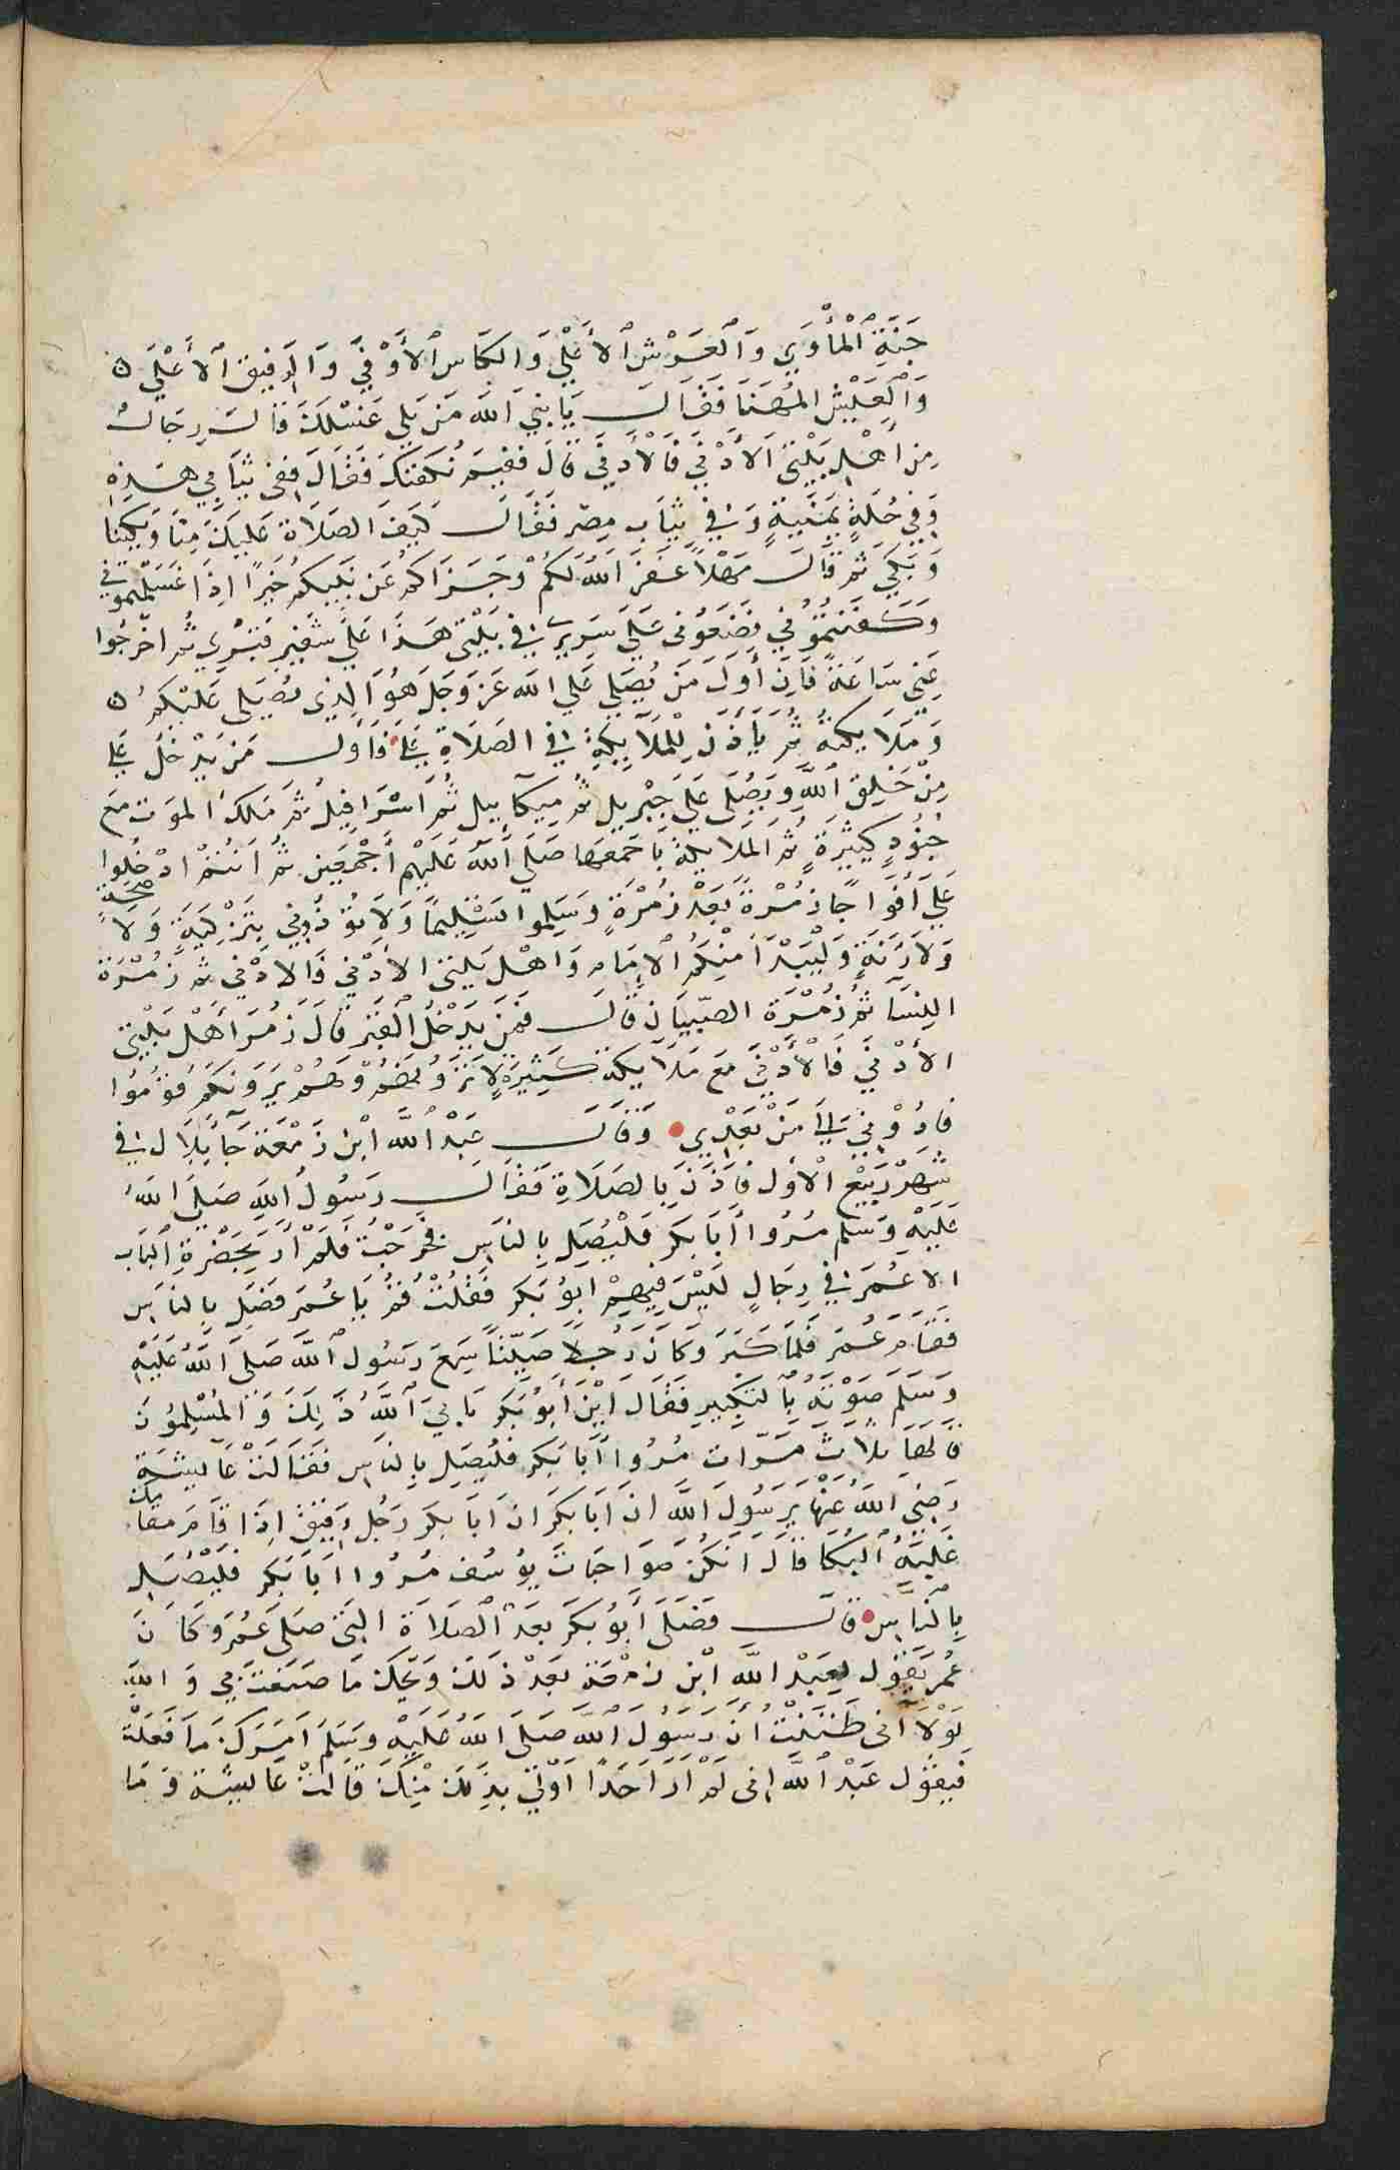 جَنَّةِ الْمَأْوَي وَالْعَرْشِ الأَعْلَي وَالكَأسِ الأَوْفَي وَالرَفِيقِ الأَعْلَي
وَالْعَيْشِ المُهَنَا فَقَالَ يَا نَبِيَ اللهِ مَن يَلِي غَسْلَكَ قَالَ رِجَالٌ
مِن أَهْلِ بَيْتِي الأَدْنَي فَالأَدنَي قَالَ فَفِيمَ نُكَفِنُكَ فَقَالَ فِفي ثيَابِي هَذِهِ
وَفِي حُلَةٍ يَمَنِيَةٍ وَفي ثِيَابِ مِصر فَقَالَ كَيفَ الصَلَاة عَلَيكَ مِنّا وَبَكينَا
وَبَكي ثمَ قَالَ مَهْلًا غَفَرَ اللهُ لَكُمْ وَجَزَاكُم عَن نَبِيكُم خَيرًا اِذَا غسَلتُمُونِي
وَكَفَنتُمُونِي فضَعُونِي عَلَي سَرِيرِي في بَيْتِي هَذَا عَلَي شَفِيرِ قَبْرِي ثُم اخْرجُوا
عَنِي سَاعَةً فَاِنَ أَوَلَ مَن يُصَلِي عَلَي الله عَز وَجَلَ هُوَ الذِي يُصَلِي عَلَيْكُم
وَمَلَايكتهُ ثُمَ يَأذَن لِلْمَلَايِكَةِ في الصَلَاةِ عَلَيَ فَاَوَل مَن يَدْخل عَلي
مِنْ خَلِقِ اللَّهِ وَيُصَلِي عَلَي جِبْرِيل ثُم مِيكَآييل ثُم اَسْرَافِيلُ ثمَ مَلَكُ المَوَت معَ
جُنُودٍ كَثِيرَةٍ ثُم المَلَايكَة بَاجمَعهَا صَلي اللهُ عَلَيْهِم أَجْمَعِين ثُم أَنتُمْ ادْخُلوا
عَلَيَ أَفوَاجًا زُمْرَةً بَعْدَ زُمْرَةٍ وَسَلِموا تَسْلِيمًا وَلَا تُؤذُونِي بِتَزْكِيَةٍ وَلَا صَيحَةٍ
وَلَا رَنَةٍ وَلْيَبْدَأ مِنكُم الاِمَامِ وَاهْل بَيتي الأَدْنِي فَالَادْنِي ثم زُمْرَة
النِسَا ثمُ زُمْرَة الصّبيَان قَالَ فَمَن يَدْخُلُ القَبْر قَالَ زُمَر أَهْلِ بَيْتِي
الأَدْنَي فَالْأَدْنَي مَعَ مَلَايكَة كَثِيرَةٍ لَا تَرَوْنَهُمْ وَهُمْ يَرَونكمُ قُومُوا
فَادُوا عَنِي اِلَي مَنْ بَعْدِي وَقَالَ عَبْدُ اللَّه ابْن زَمْعَة جَآ بِلَال في
شَهْر رَبِيْع الْأوَل فَاَذَّنَ بِالصَلَاةِ فَقَالَ رَسُولُ اللهِ صَلَيَ اللهُ
عَلَيْهِ وَسَلم مُرُوا أَبَا بَكر فَلْيُصَلِ بِالنَاسِ فَخرَجْتُ فَلَم أَرَ بِحَضْرَةِ البَاب
الا عُمَر في رِجَالٍ لَيْسَ فِيهِمْ ابوُ بَكر فَقُلْتُ قُمْ يَا عُمَر فَصَلِ بِالنَاسِ
فَقَامَ عُمَر فَلَمّا كَبَر وَكَانَ رَجُلا صَيّتًا سَمِعَ رَسُول اللهِ صَلَي اللهُ عَلَيْهِ
وَسَلَم صَوْتهُ بالتكبِيرِ فَقَالَ ايْنَ أَبُو بَكر يَابَي اللهُ ذَلِكَ وَالمُسْلِمُونَ
قَالهَا ثَلَاثَ مَرّات مُرُوا اَبَا بَكر فَليُصَلِ بِالنَاسِ فَقَالَتْ عَآيشَة
رَضِيَ اللهُ عَنْهَا يَرَسُولَ اللهِ انَ اَبَا بَكرَ ان اَبَا بَكر رَجُل رَقِيق اِذَا قَامَ مَقَامك
غَلبَهُ البُكَا قَالَ انكُن صَوَاحِبَات يوُسُف مُرُوا اَبَا بَكر فليُصَلِ
بِالنَاسِ قَالَ فَصَلَي أَبُو بَكرَ بَعْدَ الصَلَاة التِي صَلَي عُمَر وَكَانَ
عُمَرُ يَقول لِعَبْد اللَّه ابْن زمْعَة بَعْدَ ذَلكَ وَيحَكَ مَا صَنَعتَ بي وَاللهِ
لَوْلَا اَنِي ظَنَنْتُ أَنَ رَسُولَ اللهِ صَلَي اللهُ عَلَيْهِ وَسَلَم اَمَرَكَ مَا فَعَلْت
فَيَقوُل عَبْدُ اللَّه اِنِي لَم ارَ اَحَدًا اَوْلَي بذَلكَ مِنْكَ قَالتْ عَايشَة وَمَا